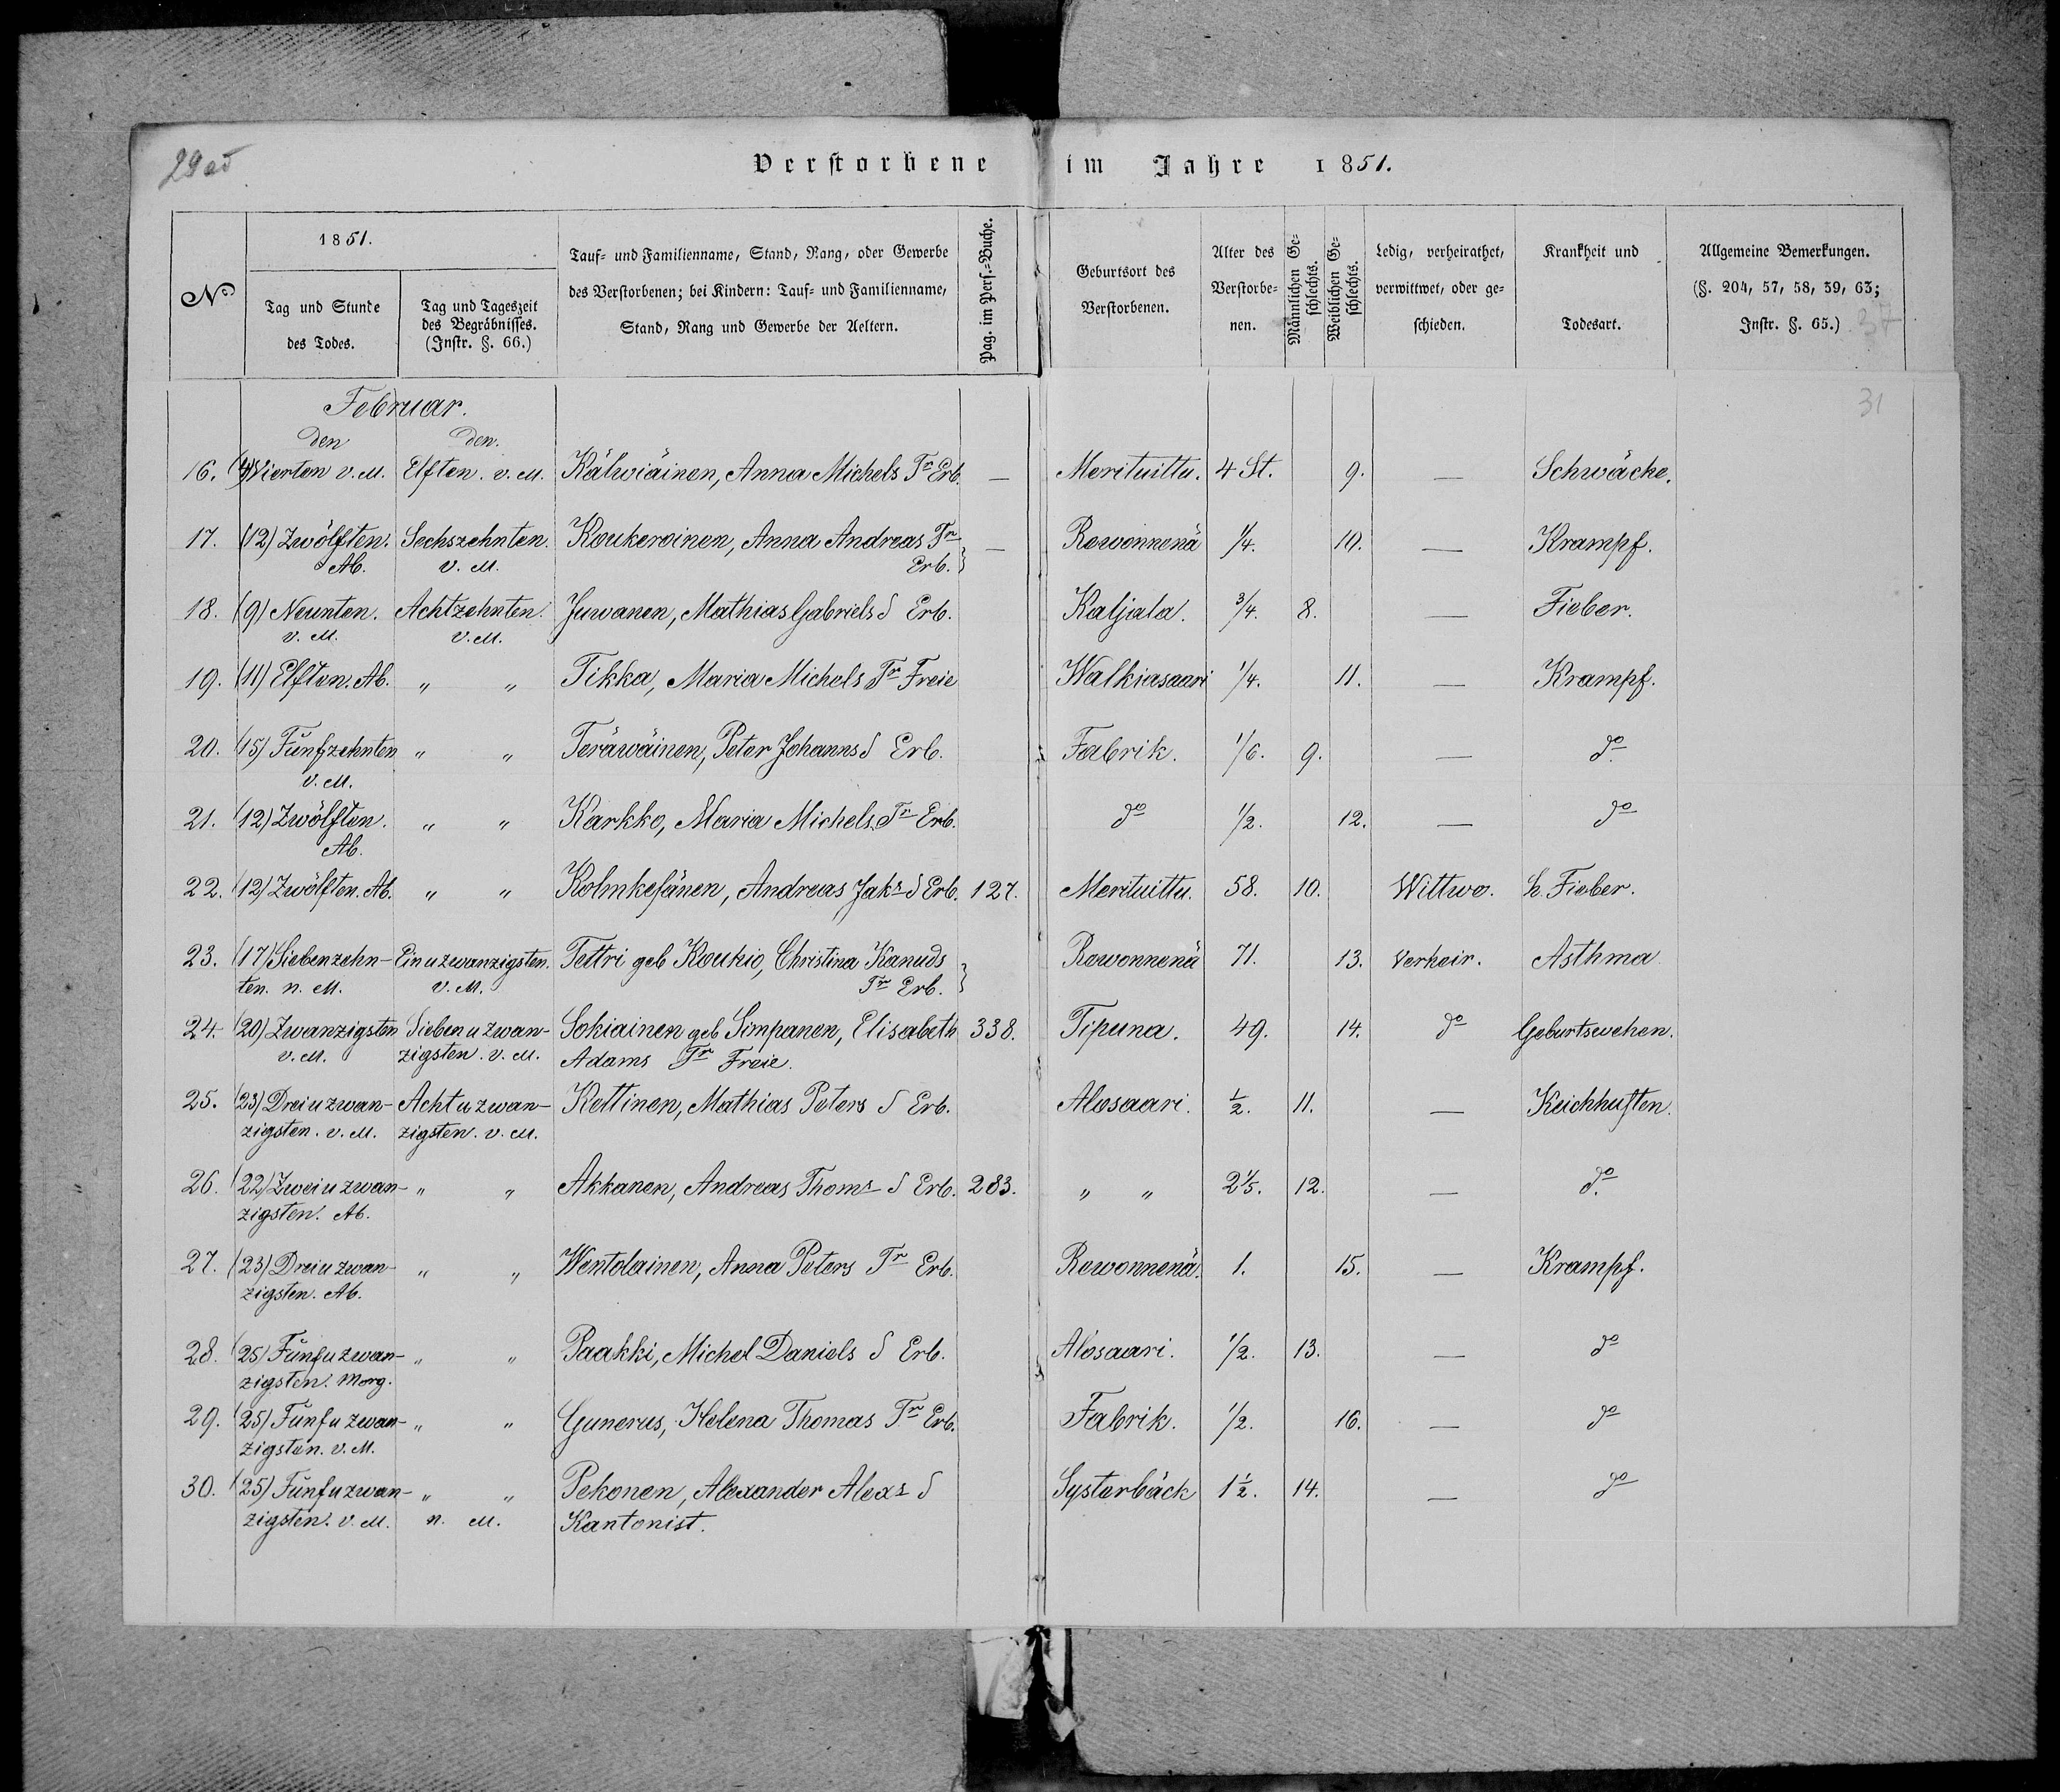 Verstorbene im Jahre 1851.
No
1851.
Tag und Stunde des Todes.
Tag und Tageszeit des Begräbnisses. (Instr. §. 66.)
Tauf- und Familienname, Stand, Rang, oder Gewerbe
des Verstorbenen; bei Kindern: Tauf- und Familienname,
Stand, Rang und Gewerbe der Aeltern.
Pag. im Pers.-Buche.
Geburtsort des Verstorbenen.
Alter des Verstorbe-nen.
Männlichen Ge-schlechts.
Weiblichen Ge-schlechts.
Ledig, verheirathet, verwittwet, oder ge-schieden.
Krankheit und Todesart.
Allgemeine Bemerkungen.
(§. 204, 57, 58, 59, 63;
Instr. §. 65.)
31
Februar.
den den.
16. (4) Vierten v. M. Elften. v. M. Kälwiäinen, Anna Michels Tr Erb. — Merituittu. 4 St. 9. — Schwäche.
17. (12) Zwölften. Sechszehnten. Koukeroinen, Anna Andreas Tr — Rowonnenä 1/4. 10. — Krampf.
Ab. v. M. Erb. }
18. (9) Neunten. Achtzehnten. Juwanen, Mathias Gabriels S Erb. Kaljala. 3/4. 8. — Fieber.
v. M. v. M.
19. (11) Elften. Ab. " " Tikka, Maria Michels Tr Freie Walkiasaari 1/4. 11. — Krampf.
20. (15) Fünfzehnten " " Teräwäinen, Peter Johanns S Erb. Fabrik. 1/6. 9. — do
v. M.
21. (12) Zwölften. " " Karkko, Maria Michels Tr Erb. do 1/2. 12. — do
Ab.
22. (12) Zwölften. Ab. " " Kolmkesänen, Andreas Jaks S Erb. 127. Merituittu. 58. 10. Wittwo. h. Fieber.
23. (17) Siebenzehn- Einuzwanzigsten. Tettri geb Koukio, Christina Kanuds Rowonnenä 71. 13. Verheir. Asthma
ten. n. M. v. M. Tr Erb. }
24. (20) Zwanzigsten Siebenuzwan- Sokiainen geb Simpanen, Elisabeth 338. Tipuna. 49. 14. do Geburtswehen.
v. M. zigsten. v. M. Adams Tr Freie.
25. (23) Dreiuzwan- Achtuzwan- Kettinen, Mathias Peters S Erb. Alosaari. 1/2. 11. — Keichhusten.
zigsten. v. M. zigsten. v. M.
26. (22) Zweiuzwan- " " Akkanen, Andreas Thoms S Erb. 283. " " 2 1/5. 12. — do
zigsten. Ab.
27. (23) Dreiuzwan- " " Wentolainen, Anna Peters Tr Erb. Rowonnenä. 1. 15. — Krampf.
zigsten. Ab.
28. (25) Fünfuzwan- " " Paakki, Michel Daniels S Erb. Alosaari. 1/2. 13. — do
zigsten. Morg.
29. (25) Fünfuzwan- " " Gunerus, Helena Thomas Tr Erb. Fabrik. 1/2. 16. — do
zigsten. v. M.
30. (25) Fünfuzwan- " " Pekonen, Alexander Alexs S Systerbäck 1 1/2. 14. — do
zigsten. v. M. n. M. Kantonist.